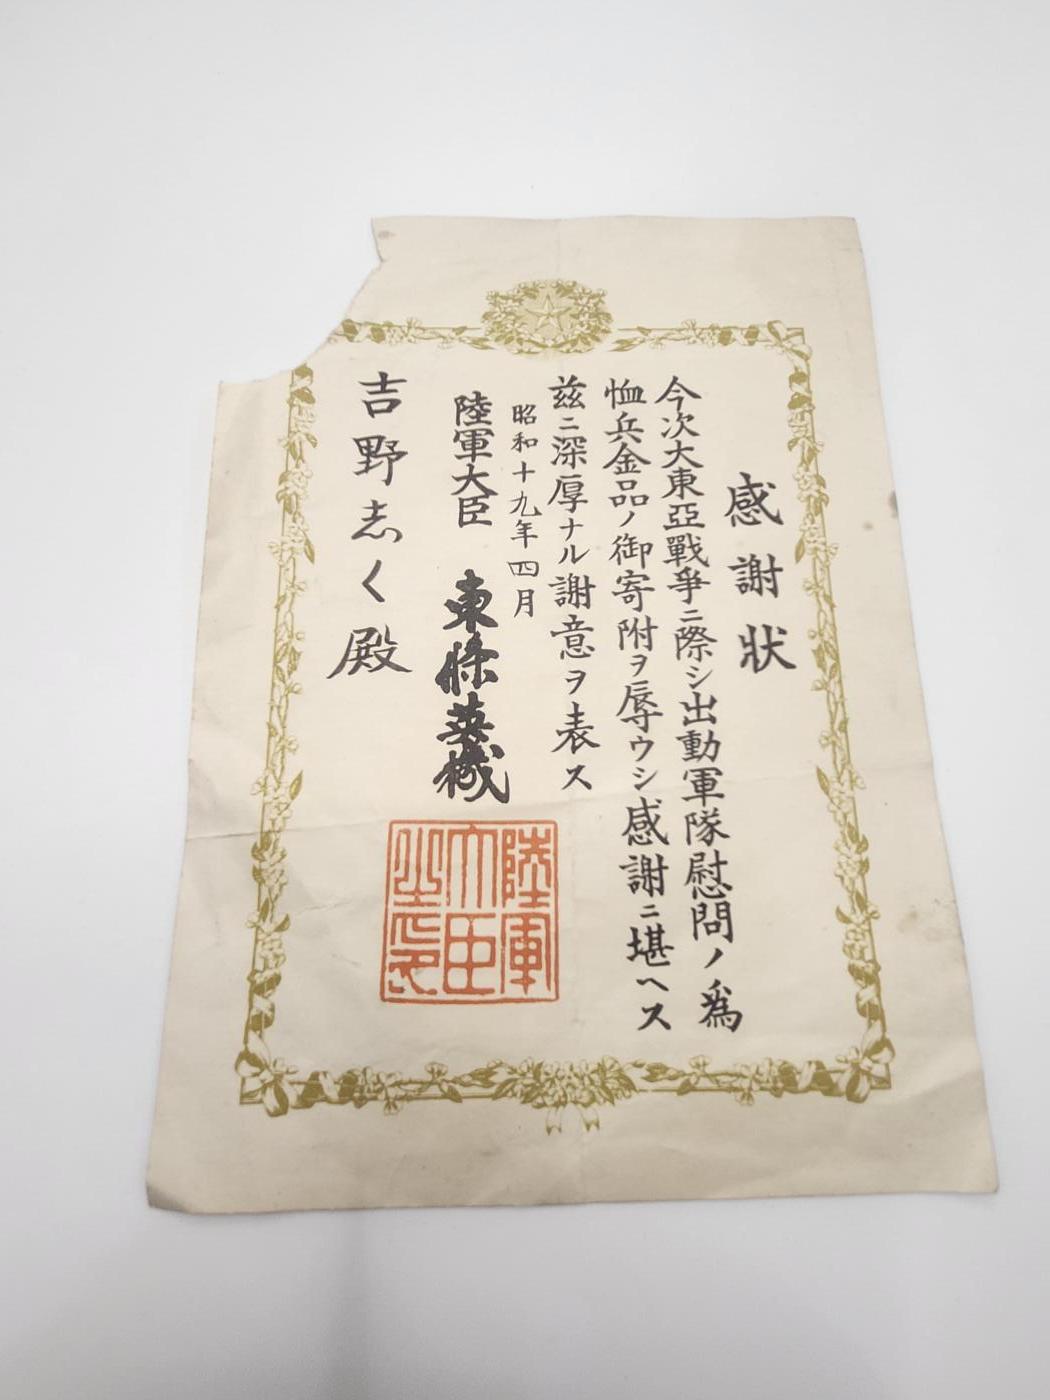 感謝状
今次大東亞戰爭ニ際シ出動軍隊慰問ノ爲
恤兵金品ノ御寄附ヲ辱ウシ感謝ニ堪ヘス
茲ニ深厚ナル謝意ヲ表ス
昭和十九年四月
陸軍大臣 東條英機
吉野志く殿
陸軍
大臣
之印